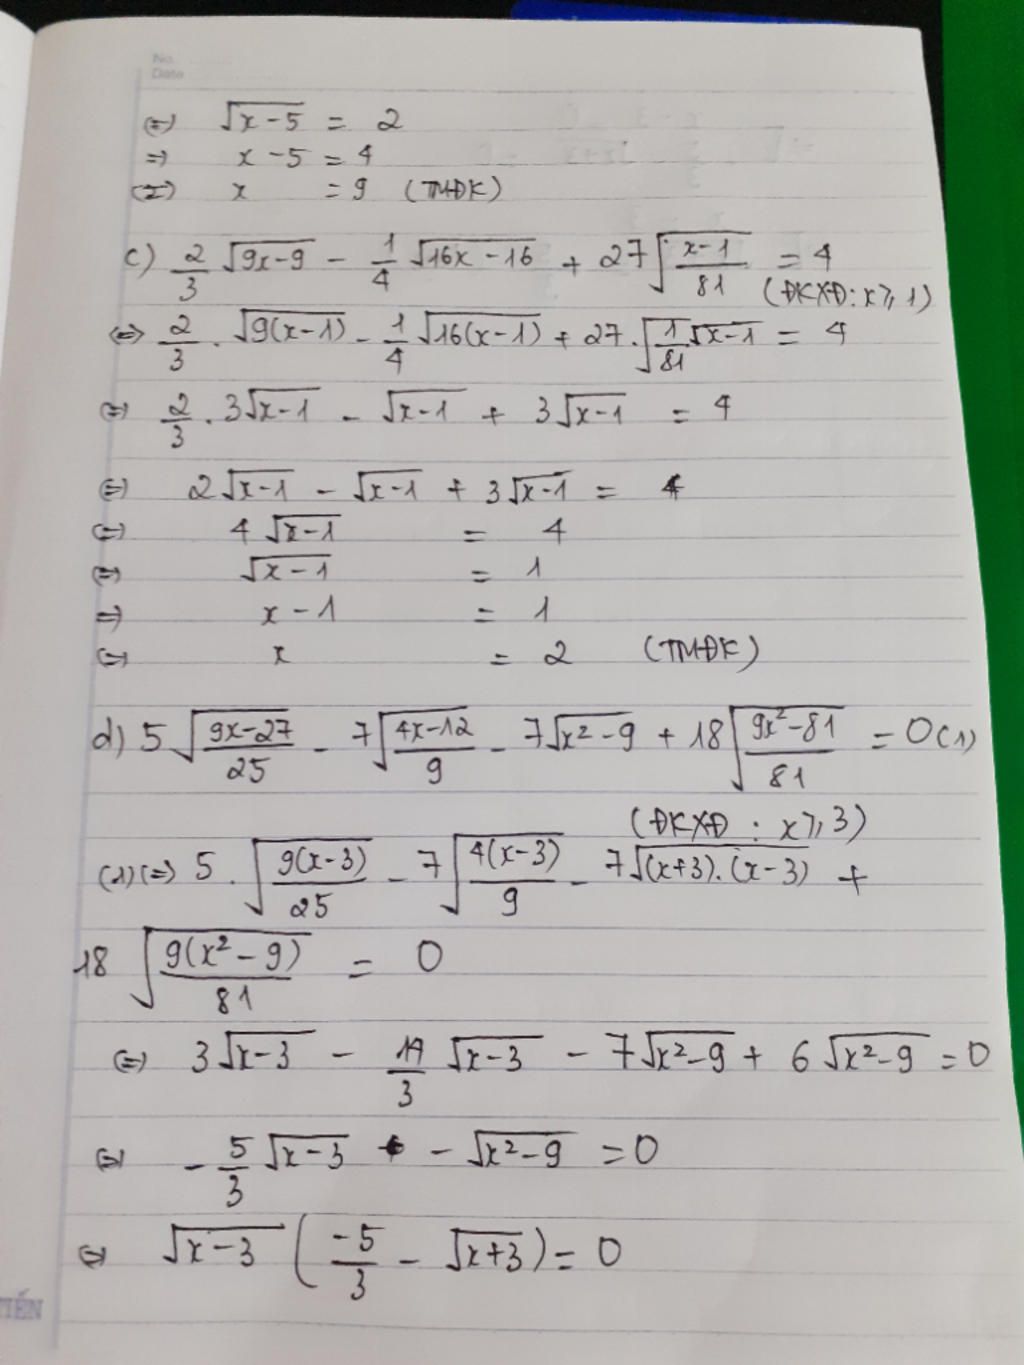 No.
Date
(=) √(x-5) = 2
=) x-5 = 4
(=) x = 9 (TMĐK)
c) 2/3 √(9x-9) - 1/4 √(16x-16) + 27√((x-1)/81) = 4
(ĐKXĐ: x ≥ 1)
(=) 2/3 . √(9(x-1)) - 1/4 √(16(x-1)) + 27.√(1/81) √(x-1) = 4
(=) 2/3 . 3√(x-1) - √(x-1) + 3√(x-1) = 4
(=) 2√(x-1) - √(x-1) + 3√(x-1) = 4
(=) 4√(x-1) = 4
(=) √(x-1) = 1
=) x-1 = 1
(=) x = 2 (TMĐK)
d) 5√((9x-27)/25) - 7√((4x-12)/9) - 7√(x²-9) + 18√((9x²-81)/81) = 0 (1)
(ĐKXĐ : x ≥ 3)
(1) (=) 5 . √(9(x-3)/25) - 7√(4(x-3)/9) - 7√((x+3).(x-3)) +
18 √(9(x²-9)/81) = 0
(=) 3√(x-3) - 14/3 √(x-3) - 7√(x²-9) + 6√(x²-9) = 0
(=) -5/3 √(x-3) - √(x²-9) = 0
(=) √(x-3) (-5/3 - √(x+3)) = 0
TIẾN